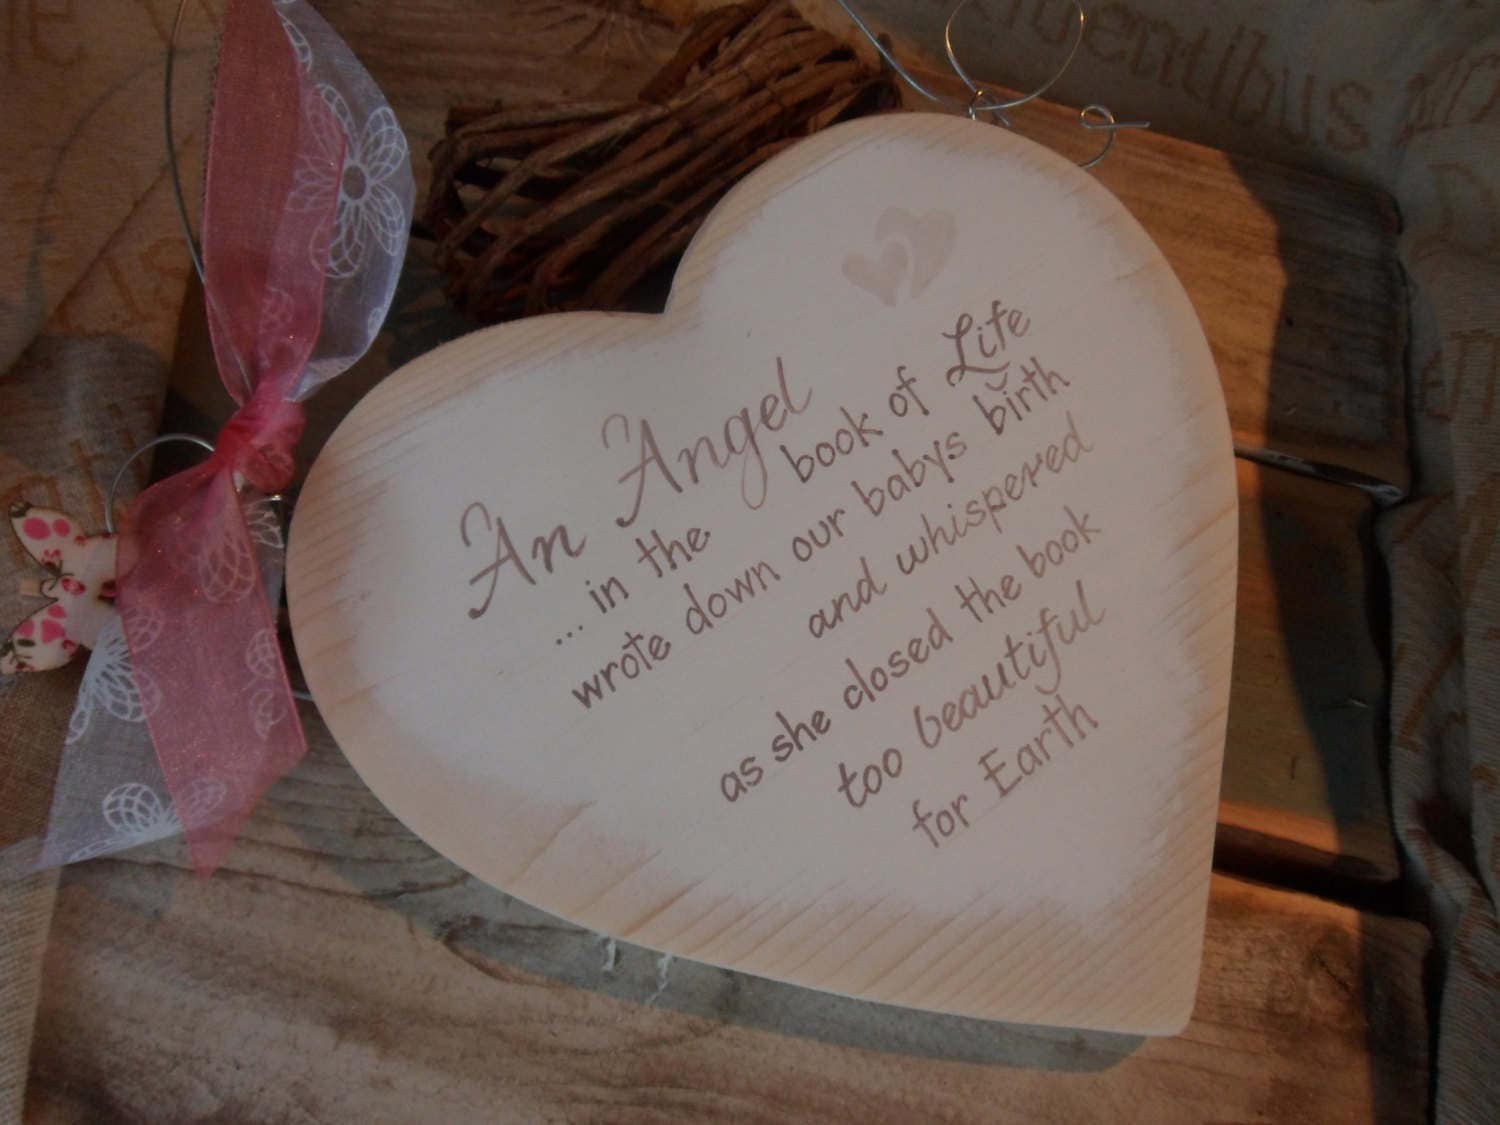 An Angel
... in the book of Life
wrote down our babys birth
and whispered
as she closed the book
too beautiful
for Earth